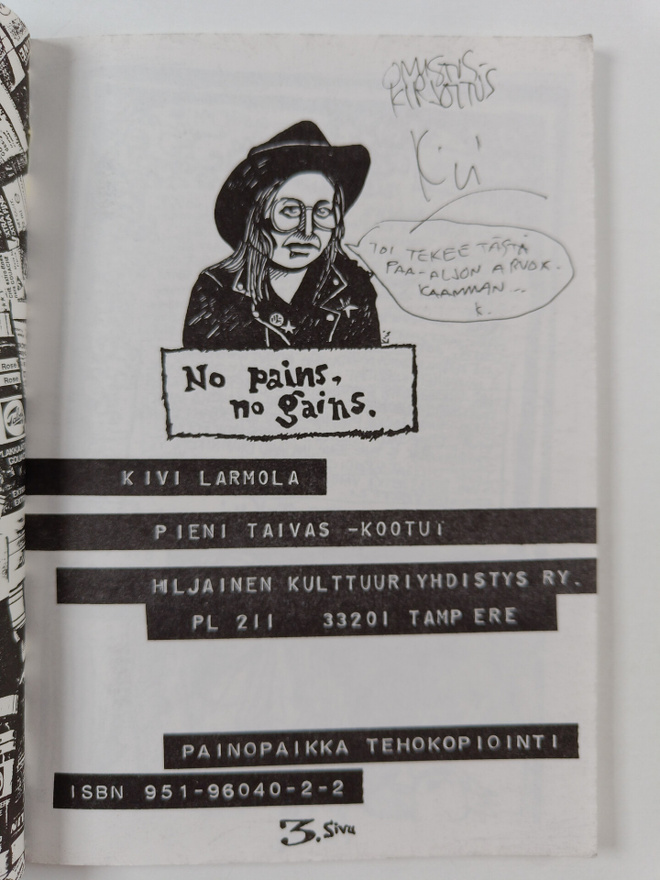 OMISTUS-
KIRJOITUS
TEKEE TÄSTÄ
K.
No pains,
no gains.
KIVI LARMOLA
PIENI TAIVAS -KOOTUT
HILJAINEN KULTTUURIYHDISTYS RY.
PL 211 33201 TAMPERE
PAINOPAIKKA TEHOKOPIOINTI
ISBN 951-96040-2-2
3. Sivu